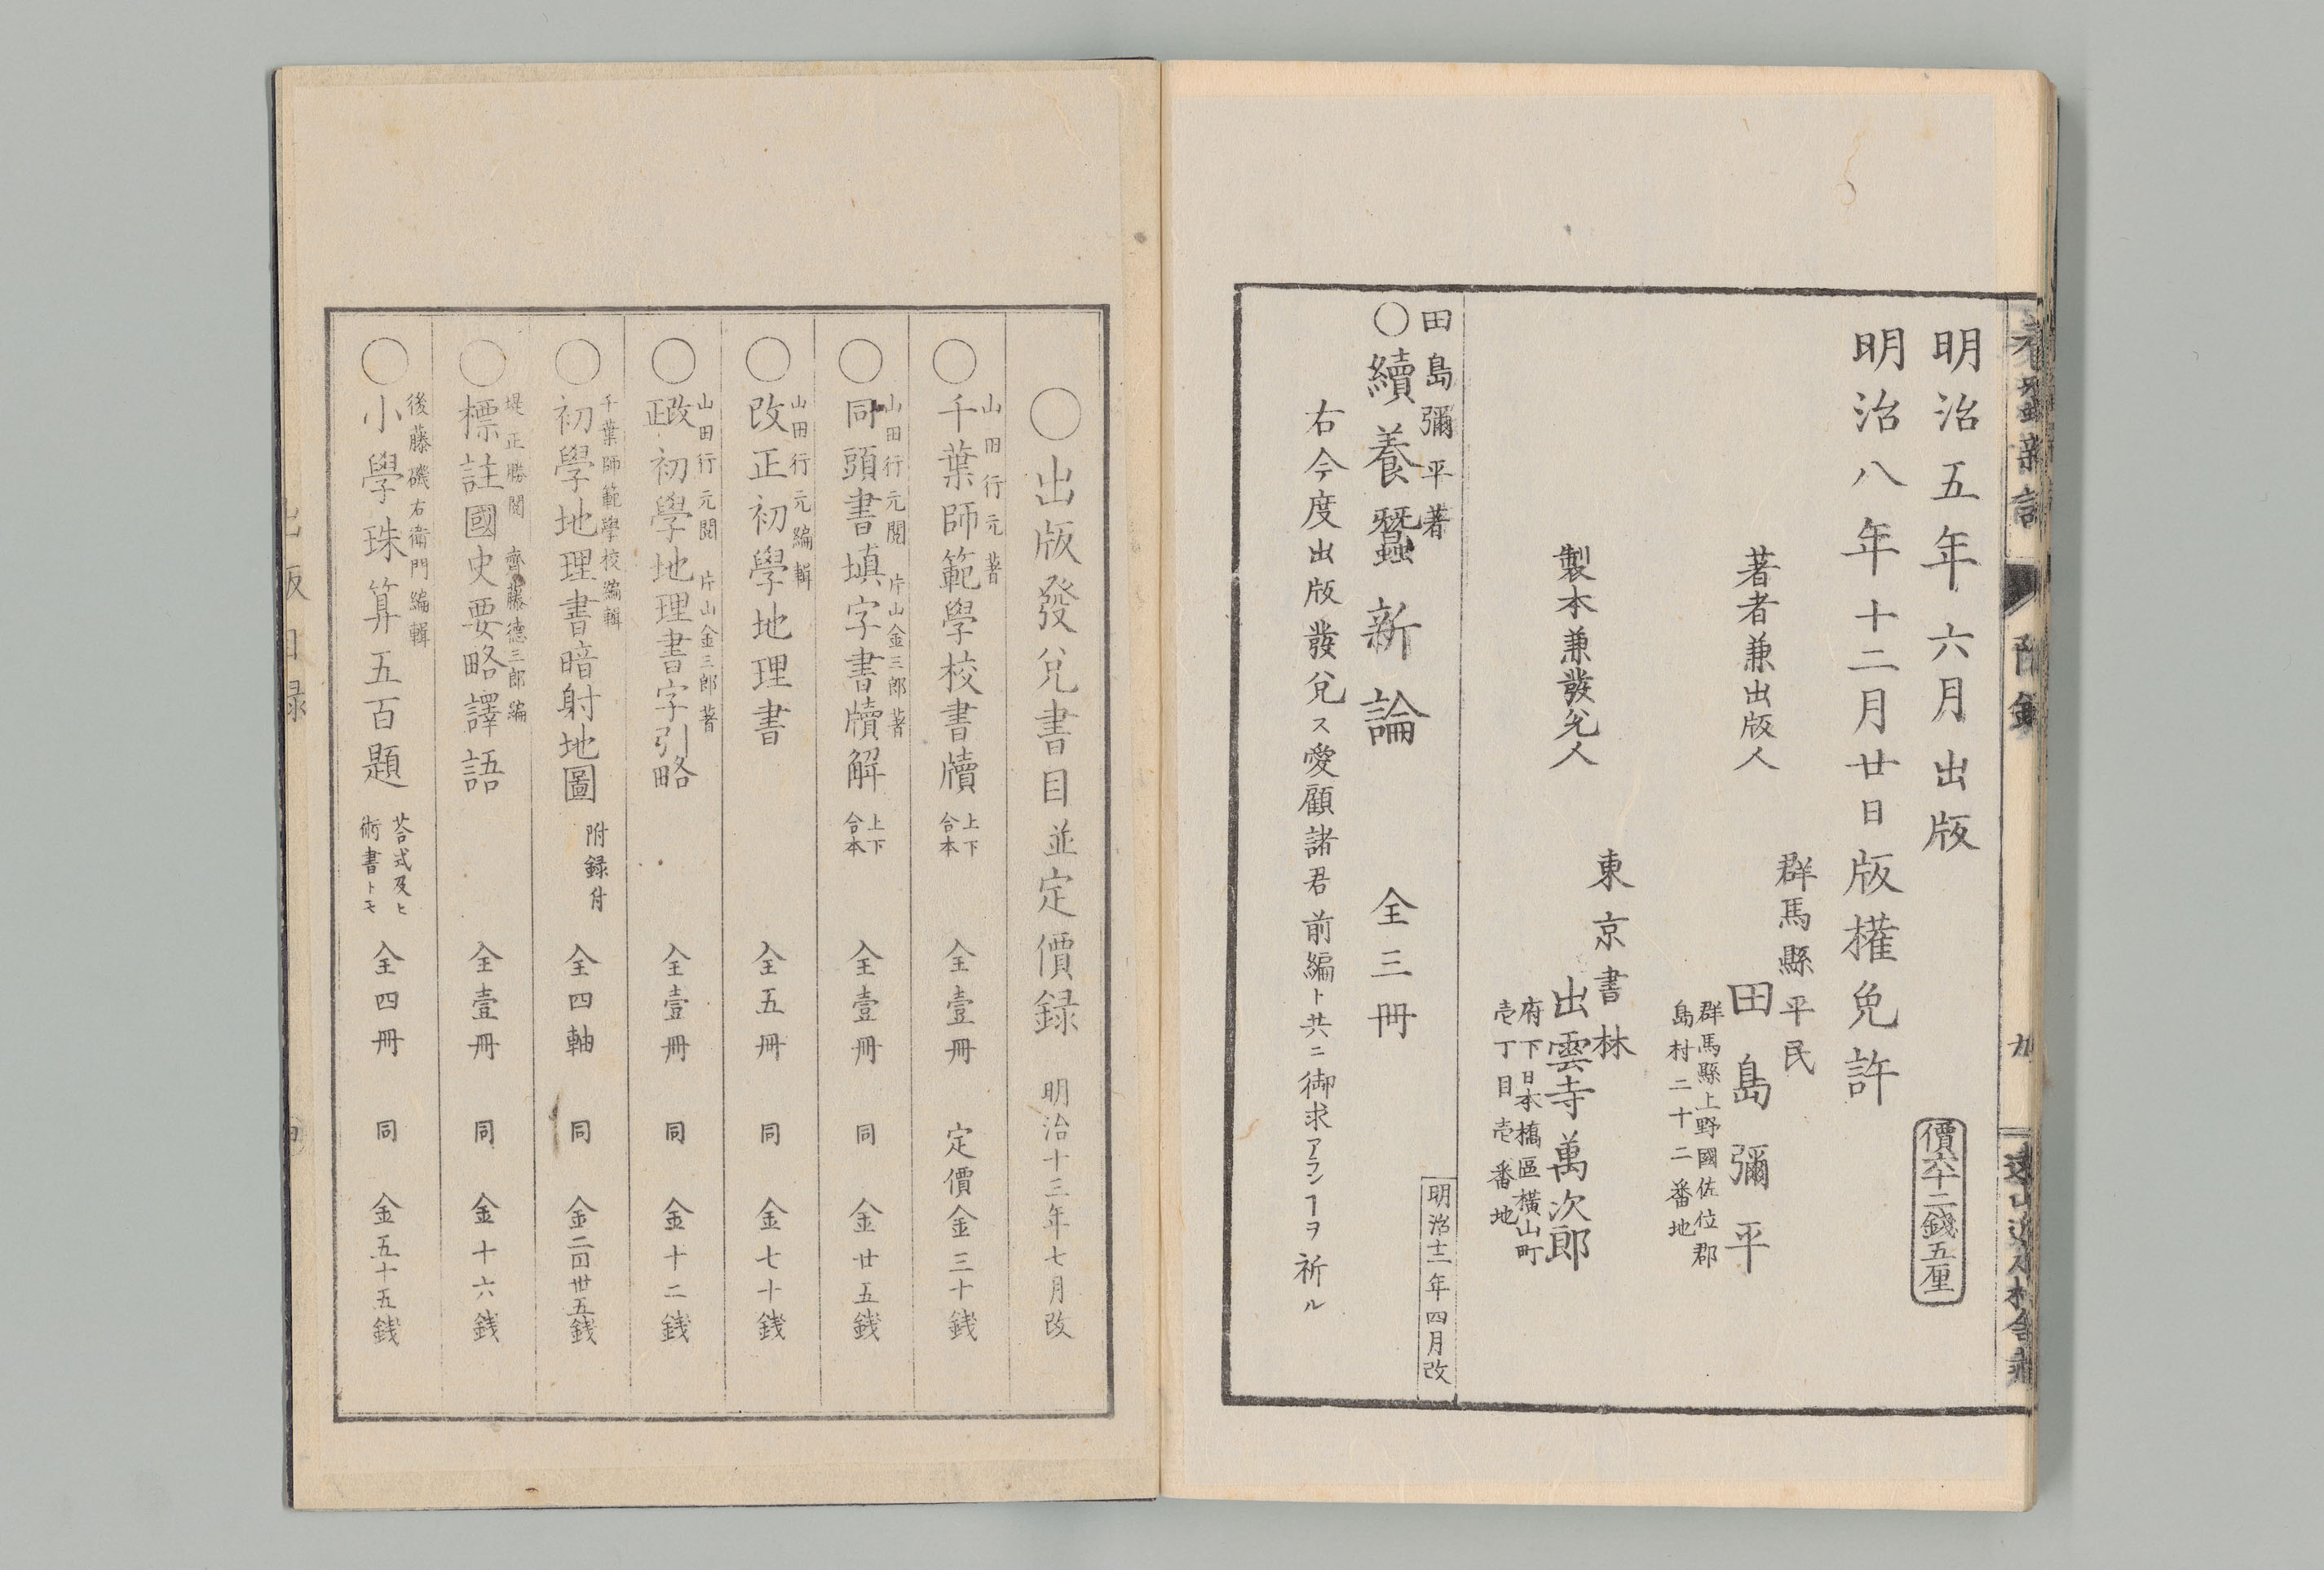 明治五年六月出版
價六十二錢五厘
明治八年十二月廿日版權免許
群馬縣平民
著者兼出版人
田島彌平
群馬縣上野國佐位郡
島村二十二番地
東京書林
製本兼發兌人
出雲寺萬次郎
府下日本橋區横山町
壱丁目壱番地
明治十二年四月改
田島彌平著
〇續養蠶新論 全三冊
右今度出版發兌ス愛顧諸君前編ト共ニ御求アランヿヲ祈ル
〇出版發兌書目並定價録 明治十三年七月改
山田行元著
〇千葉師範學校書牘 上下合本 全壹冊 定價金三十銭
山田行元閲 片山金三郎著
〇同頭書填字書牘解 上下合本 全壹冊 同 金廿五銭
山田行元編輯
〇改正初學地理書 全五冊 同 金七十銭
山田行元閲 片山金三郎著
〇改正初學地理書字引略 全壹冊 同 金十二銭
千葉師範學校編輯
〇初學地理書暗射地圖 附録付 全四軸 同 金二円卅五銭
堤正勝閲 齊藤德三郎編
〇標註國史要略譯語 全壹冊 同 金十六銭
後藤磯右衛門編輯
〇小學珠算五百題 荅式及ヒ術書トモ 全四冊 同 金五十五銭